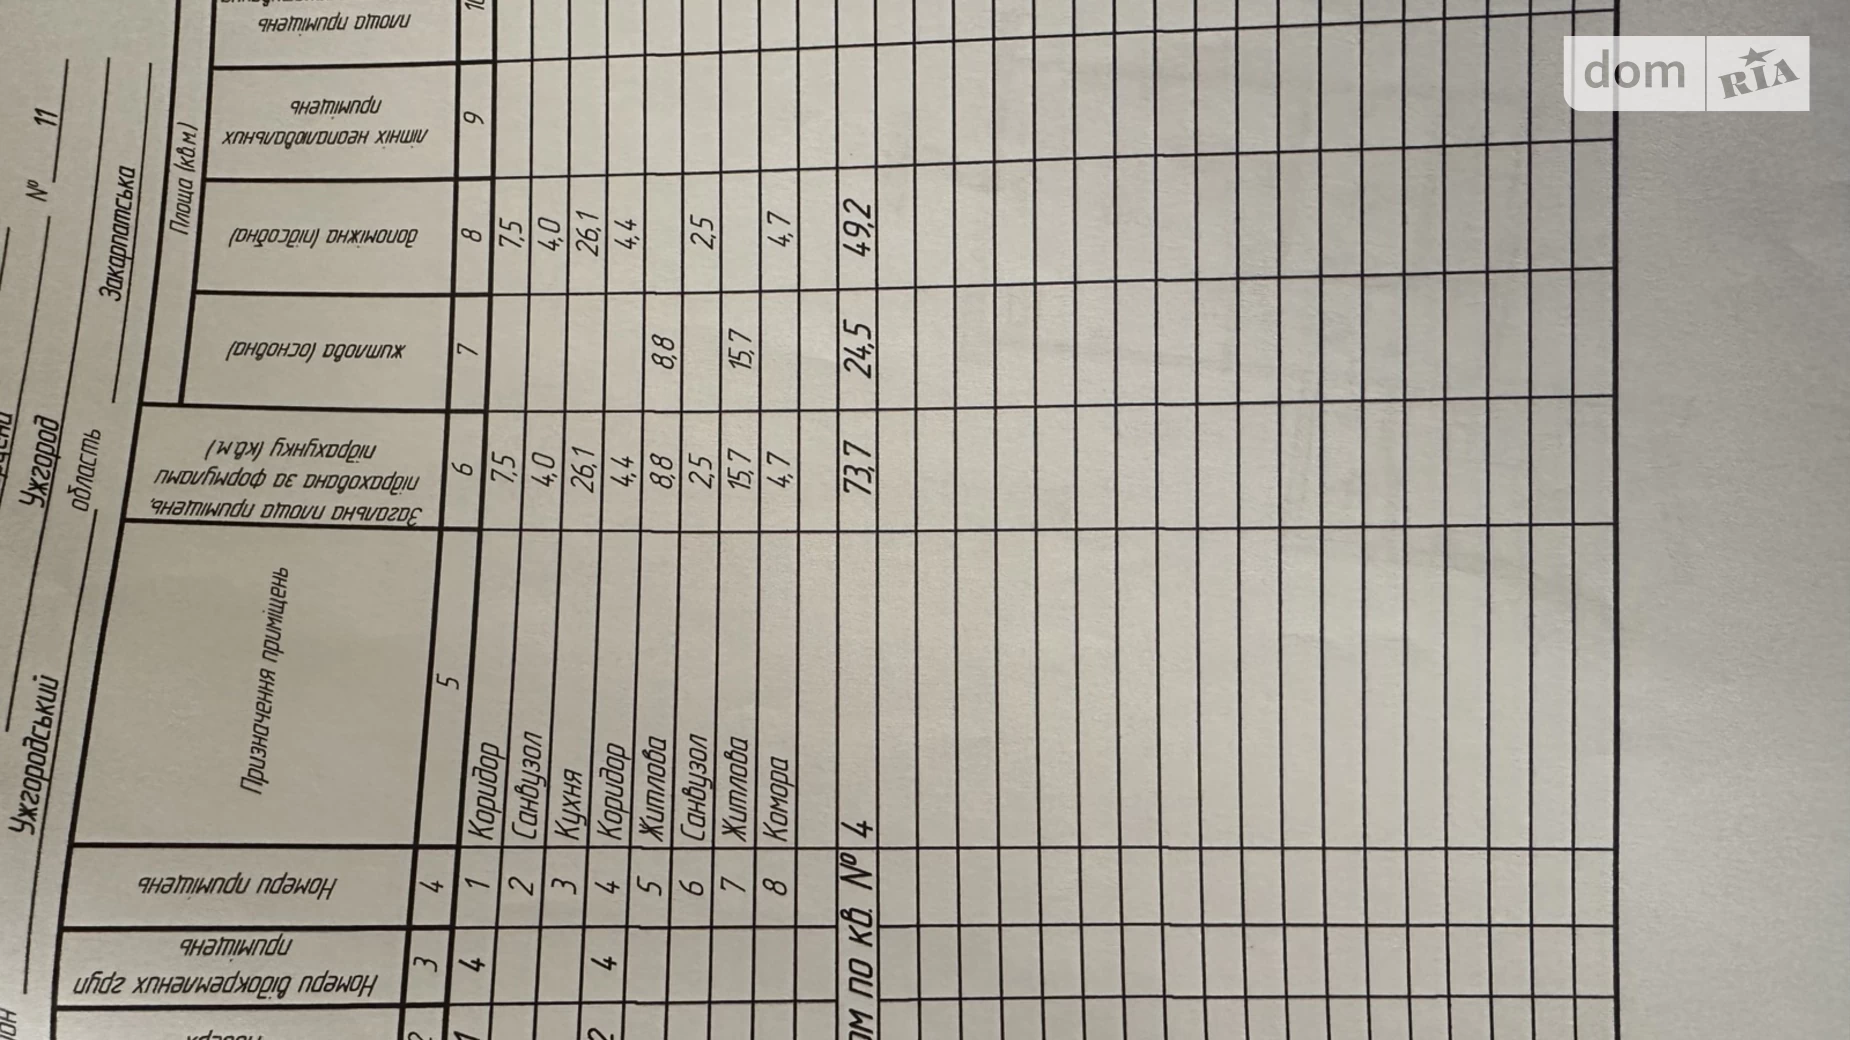 Ужгородський
Ужгород № 11
область Закарпатська
Номери відокремлених груп приміщень
Номери приміщень
Призначення приміщень
Загальна площа приміщень, підрахована за формулами підрахунку (кв.м.)
Площа (кв.м.)
житлова (основна)
допоміжна (підсобна)
літніх неопалювальних приміщень
площа приміщень
2 3 4 5 6 7 8 9 10
1 4 1 Коридор 7,5 7,5
2 Санвузол 4,0 4,0
3 Кухня 26,1 26,1
2 4 4 Коридор 4,4 4,4
5 Житлова 8,8 8,8
6 Санвузол 2,5 2,5
7 Житлова 15,7 15,7
8 Комора 4,7 4,7
по кв. № 4 73,7 24,5 49,2
dom RIA